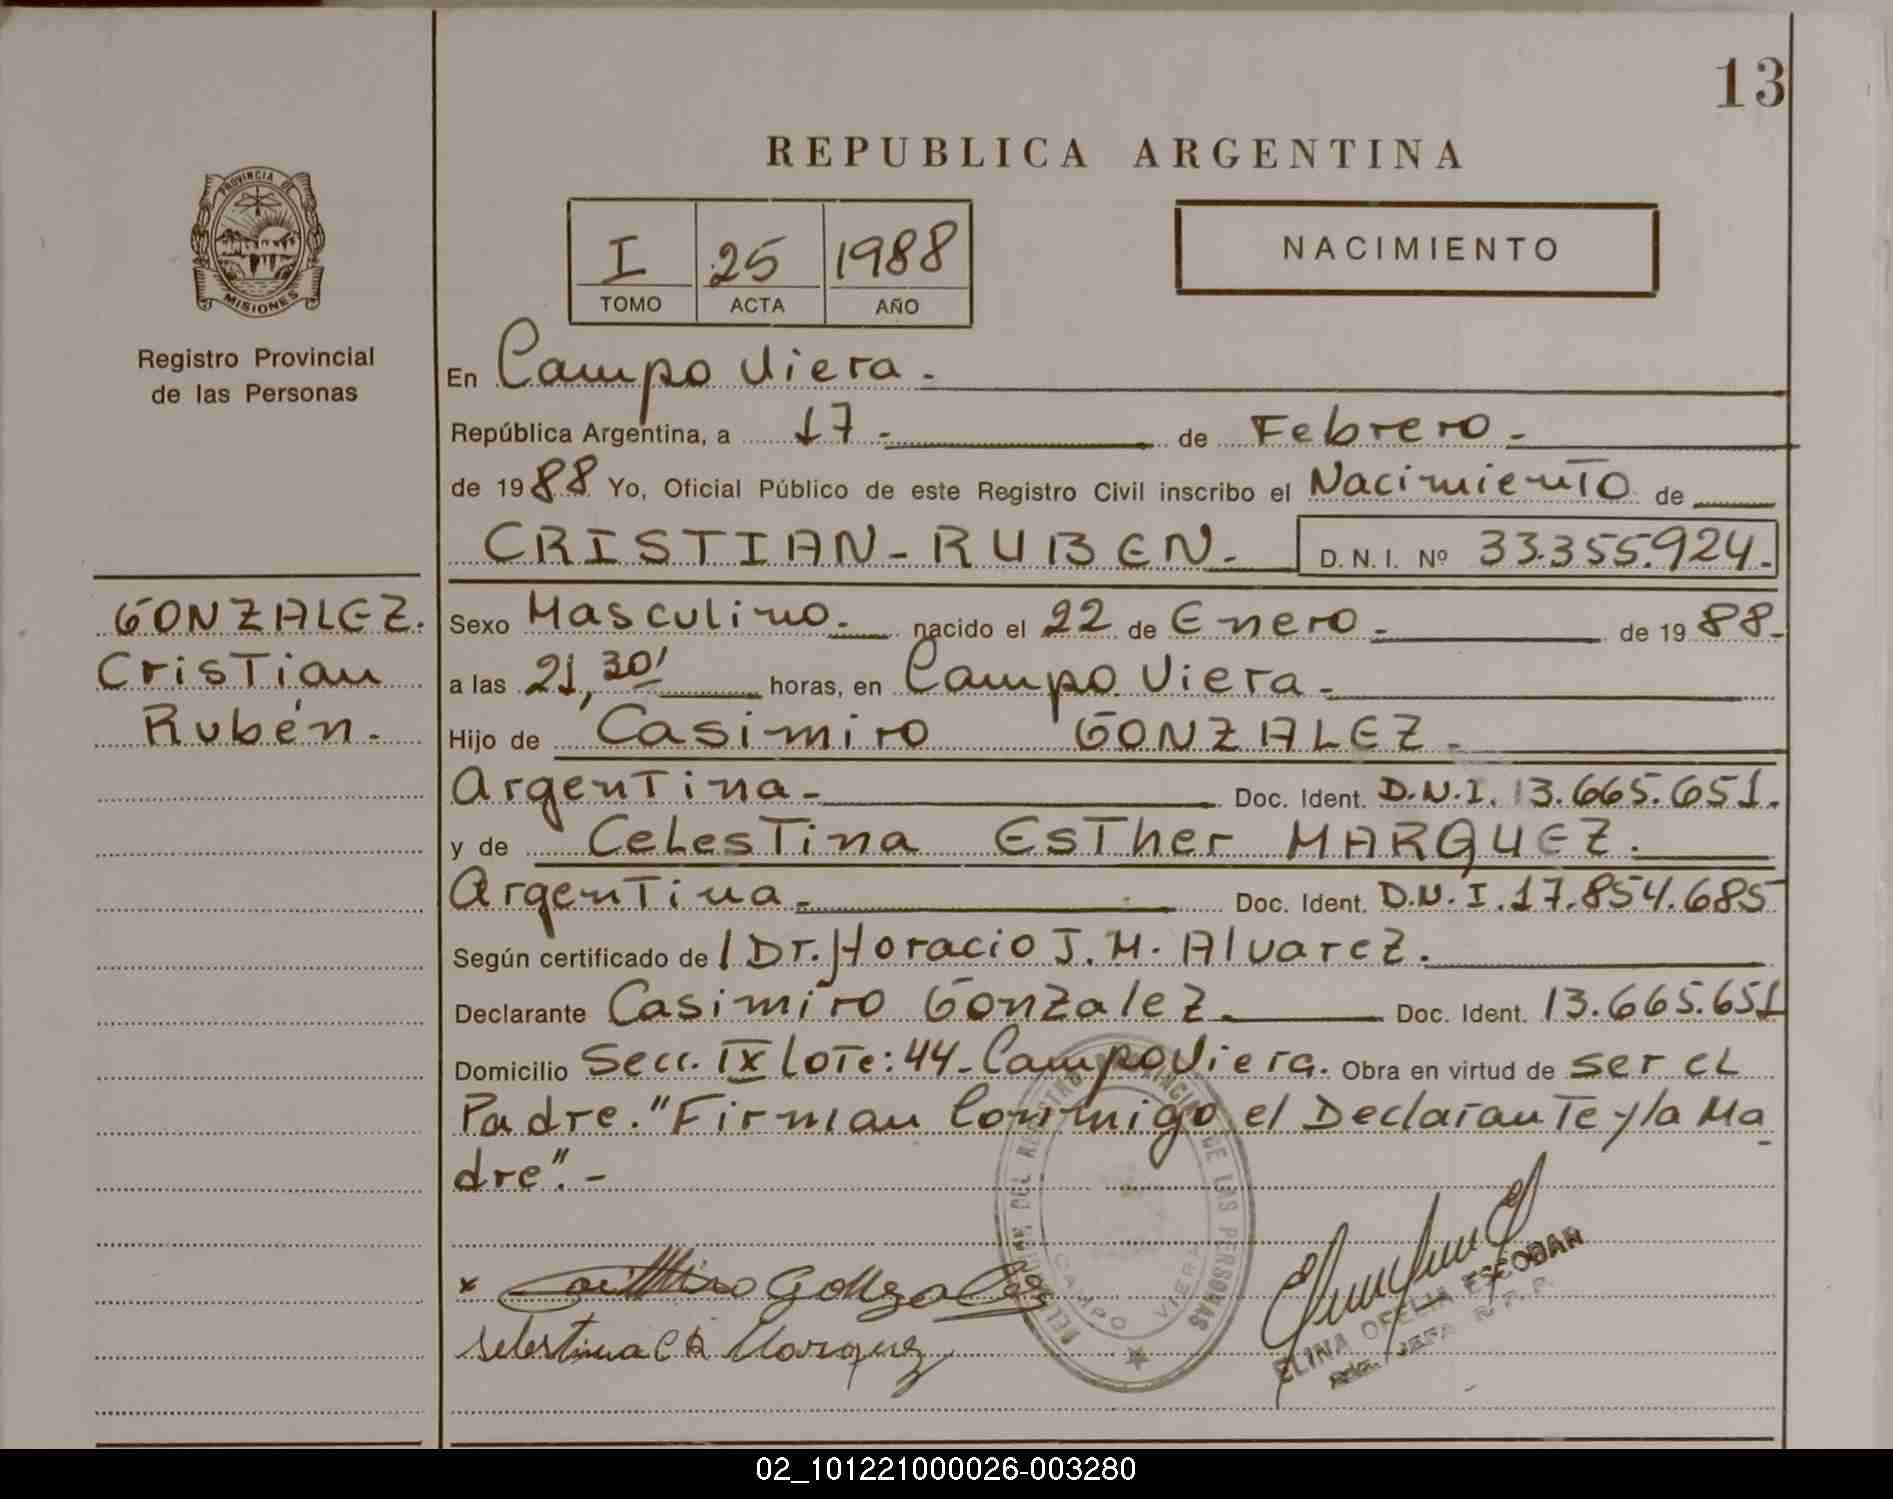 13
REPUBLICA ARGENTINA
PROVINCIA DE
MISIONES
Registro Provincial
de las Personas
I 25 1988
TOMO ACTA AÑO
NACIMIENTO
En Campo Viera.
República Argentina, a 17 - de Febrero -
de 1988 Yo, Oficial Público de este Registro Civil inscribo el Nacimiento de
CRISTIAN-RUBEN.- D.N.I. Nº 33.355.924.-
GONZALEZ.
Cristian
Rubén.-
Sexo Masculino.- nacido el 22 de Enero.- de 1988.-
a las 21,30' horas, en Campo Viera.-
Hijo de Casimiro GONZALEZ.-
Argentina.- Doc. Ident. D.N.I. 13.665.651.
y de Celestina Esther MARQUEZ.
Argentina.- Doc. Ident. D.N.I. 17.854.685
Según certificado de l Dr. Horacio J. M. Alvarez.
Declarante Casimiro Gonzalez.- Doc. Ident. 13.665.651
Domicilio Secc. IX Lote: 44-Campo Viera. Obra en virtud de ser el
Padre. "Firman Conmigo el Declarante y la Ma
dre".-
DEL REGISTRO PROVINCIAL DE LAS PERSONAS
CAMPO VIERA
x Casimiro Gonzalez
Selestina E Marquez
ELINA OFELIA ESCOBAR
JEFA R.P.P.
02_101221000026-003280